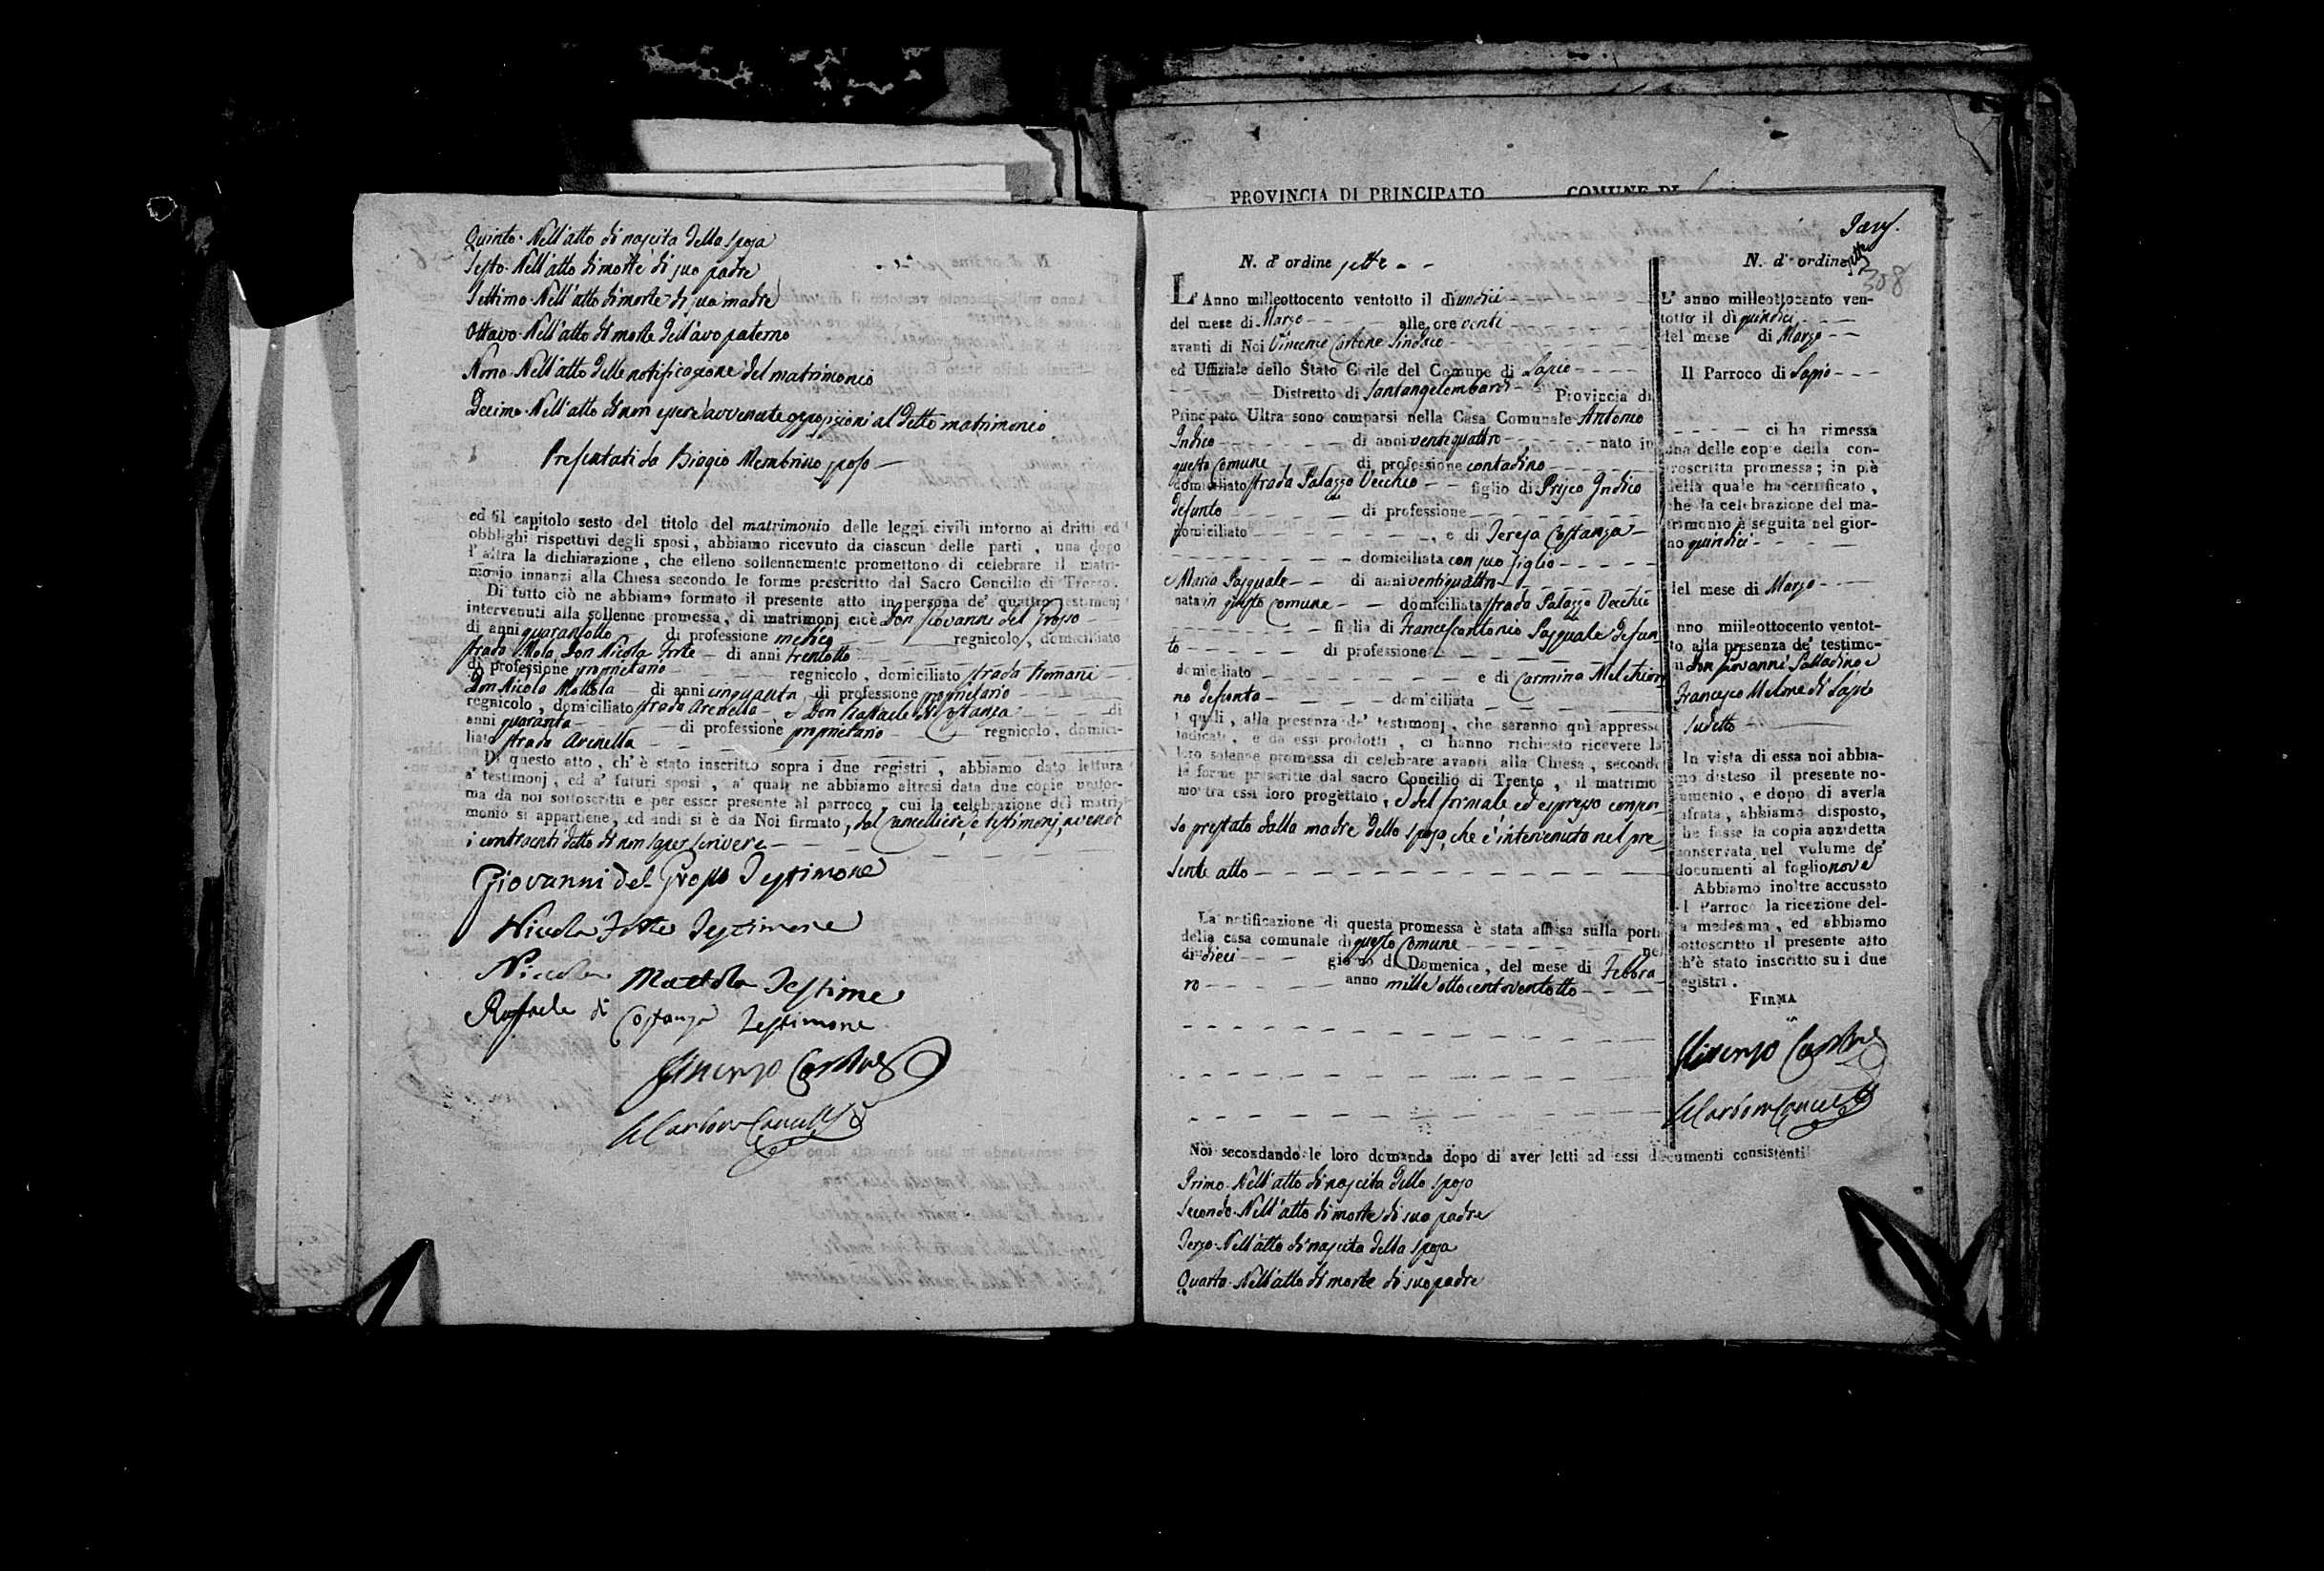 Quinto. Nell'atto di nascita della sposa
Sesto. Nell'atto di morte di suo padre
Settimo. Nell'atto di morte di sua madre
Ottavo. Nell'atto di morte dell'avo paterno
Nono. Nell'atto delle notificazione del matrimonio
Decimo. Nell'atto di non essere avvenute opposizioni al detto matrimonio
Presentati da Biagio Membrino sposo
ed il capitolo sesto del titolo del matrimonio delle leggi civili intorno ai dritti ed
obblighi rispettivi degli sposi, abbiamo ricevuto da ciascun delle parti, una dopo
l'altra la dichiarazione, che elleno sollennemente promettono di celebrare il matri-
monio innanzi alla Chiesa secondo le forme prescritto dal Sacro Concilio di Trento.
Di tutto ciò ne abbiamo formato il presente atto in persona de' quattro testimonj
intervenuti alla sollenne promessa, di matrimonj cioè Don Giovanni del Grosso
di anni quarantotto di professione medico regnicolo, domiciliato
strada Mola, Don Nicola Forte di anni trentotto
di professione proprietario regnicolo, domiciliato strada Romani
Don Nicola Mottola di anni cinquanta di professione proprietario
regnicolo, domiciliato strada Arenella, e Don Raffaele di Costanza di
anni quaranta di professione proprietario regnicolo, domici-
liato strada Arenella
Di questo atto, ch'è stato inscritto sopra i due registri, abbiamo dato lettura
a' testimonj, ed a' futuri sposi, a' quali ne abbiamo altresì data due copie unifor-
ma da noi sottoscritta e per esser presente al parroco, cui la celebrazione del matri-
monio si appartiene, ed indi si è da Noi firmato, dal Cancelliere, e testimonj, avendo
i contraenti detto di non saper scrivere
Giovanni del Grosso Testimone
Nicola Forte Testimone
Nicola Mottola Testime
Raffaele di Costanza Testimone
Vincenzo Carbone
Carbone Cancell
PROVINCIA DI PRINCIPATO COMUNE DI
N. d'ordine sette
L'Anno milleottocento ventotto il dì undici
del mese di Marzo alle ore venti
avanti di Noi Vincenzo Carbone Sindaco
ed Uffiziale dello Stato Civile del Comune di Lapio
Distretto di Santangelombardi Provincia di
Principato Ultra sono comparsi nella Casa Comunale Antonio
Indico di anni ventiquattro nato in
questo Comune di professione contadino
domiciliato strada Palazzo Vecchio figlio di Prisco Indico
defunto di professione
domiciliato, e di Teresa Costanza
domiciliata con suo figlio
e Maria Pasquale di anni ventiquattro
nata in questo Comune domiciliata strada Palazzo Vecchio
figlia di Francescantonio Pasquale defun
to di professione
domiciliato e di Carmina Melchion
no defunta domiciliata
i quali, alla presenza de' testimonj, che saranno quì appresso
indicati, e da essi prodotti, ci hanno richiesto ricevere la
loro solenne promessa di celebrare avanti alla Chiesa, secondo
le forme prescritte dal sacro Concilio di Trento, il matrimo
nio tra essi loro progettato, e del formale, ed espresso consen
so prestato dalla madre dello sposo, che è intervenuta nel pre
sente atto
La notificazione di questa promessa è stata affisa sulla porta
della casa comunale di questo Comune nel
dì dieci giorno di Domenica, del mese di Febbra
ro anno mille ottocentoventotto
Noi secondando le loro domanda dopo di aver letti ad essi documenti consistenti
Primo. Nell'atto di nascita dello sposo
Secondo. Nell'atto di morte di suo padre
Terzo. Nell'atto di nascita della sposa
Quarto. Nell'atto di morte di suo padre
N. d'ordine sette
308
L'anno milleottocento ven-
totto il dì quindici
del mese di Marzo
Il Parroco di Lapio
ci ha rimessa
una delle copie della con-
troscritta promessa; in piè
della quale ha certificato,
che la celebrazione del ma-
trimonio è seguita nel gior-
no quindici
del mese di Marzo
anno miileottocento ventot-
to alla presenza de' testimo-
nj Don Giovanni Palladino e
Francesco Melone di Lapio
sudetto
In vista di essa noi abbia-
mo disteso il presente no-
tamento, e dopo di averla
cifrata, abbiamo disposto,
che fosse la copia anzidetta
conservata nel volume de'
documenti al foglio nove
Abbiamo inoltre accusato
al Parroco la ricezione del-
la medesima, ed abbiamo
sottoscritto il presente atto
ch'è stato inscritto su i due
registri.
FIRMA
Vincenzo Carbone
Carbone Cancell